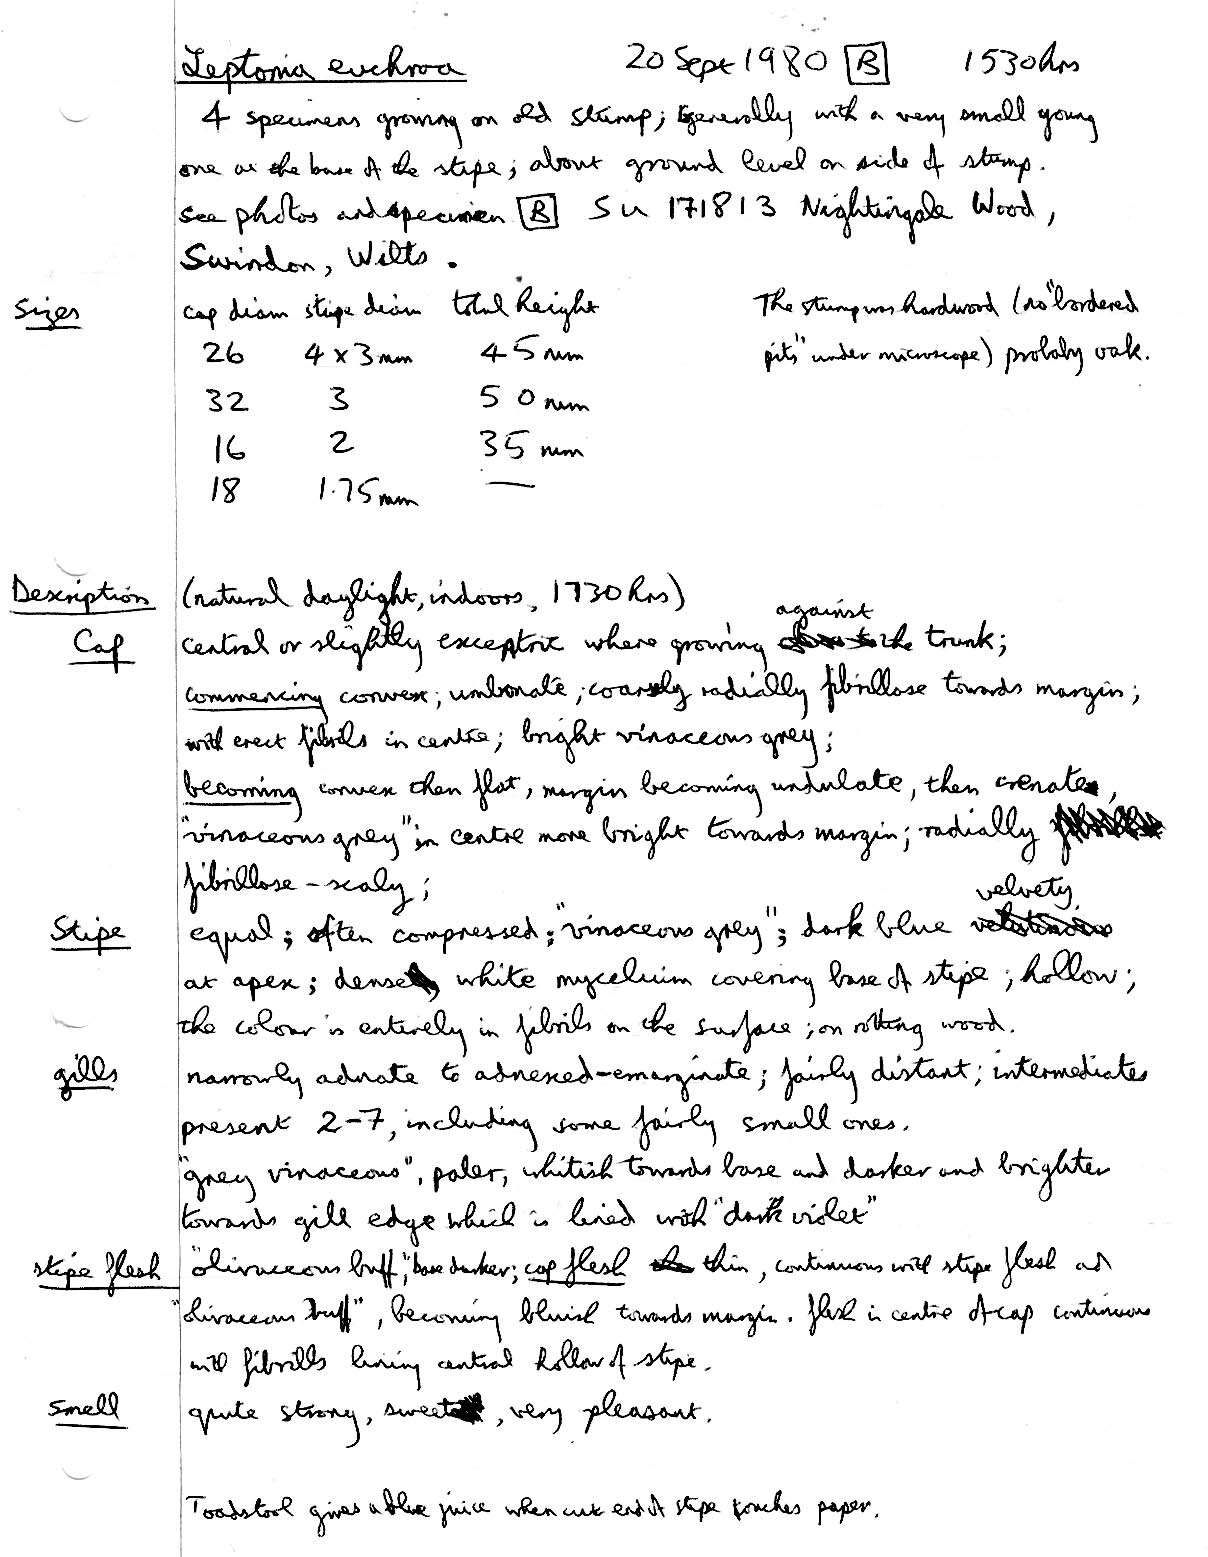 Leptonia euchroa 20 Sept 1980 B 1530hrs
4 specimens growing on old stump; generally with a very small young
one at the base of the stipe; about ground level on side of stump.
see photos and specimen B SU 171813 Nightingale Wood,
Swindon, Wilts.
Sizes cap diam stipe diam total height The stump was hardwood (no "bordered
26 4 x 3 mm 45 mm pits" under microscope) probaly oak.
32 3 50 mm
16 2 35 mm
18 1.75mm —
Description (natural daylight, indoors, 1730 hrs)
against
Cap central or slightly exceptric where growing the trunk;
commencing convex; umbonate; coarsely radially fibrillose towards margin;
with erect fibrils in centre; bright vinaceous grey;
becoming convex then flat, margin becoming undulate, then crenate,
"vinaceous grey" in centre more bright towards margin; radially
fibrillose - scaly;
velvety
Stipe equal; often compressed; "vinaceous grey"; dark blue
at apex; dense white mycelium covering base of stipe; hollow;
the colour is entirely in fibrils on the surface; on rotting wood.
gills narrowly adnate to adnexed-emarginate; fairly distant; intermediates
present 2-7, including some fairly small ones.
"grey vinaceous", paler, whitish towards base and darker and brighter
towards gill edge which is lined with "dark violet"
stipe flesh "olivaceous buff", base darker; cap flesh thin, continuous with stipe flesh and
"olivaceous buff", becoming bluish towards margin. flesh in centre of cap continuous
with fibrills lining central hollow of stipe.
smell quite strong, sweet, very pleasant.
Toadstool gives a blue juice when cut end of stipe touches paper.